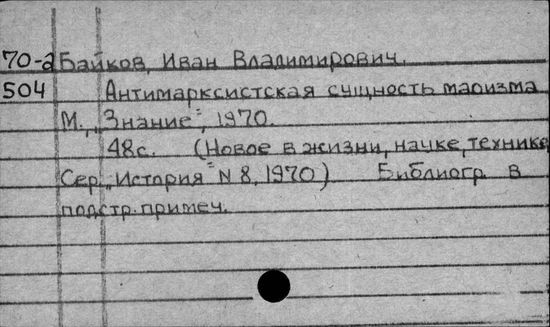 70-2 Байков, Иван Владимирович.
504 Антимарксистская сущность маоизма
М., „Знание", 1970.
48с. (Новое в жизни, науке, технике,
Сер. „История" N 8, 1970) Библиогр. в
подстр. примеч.